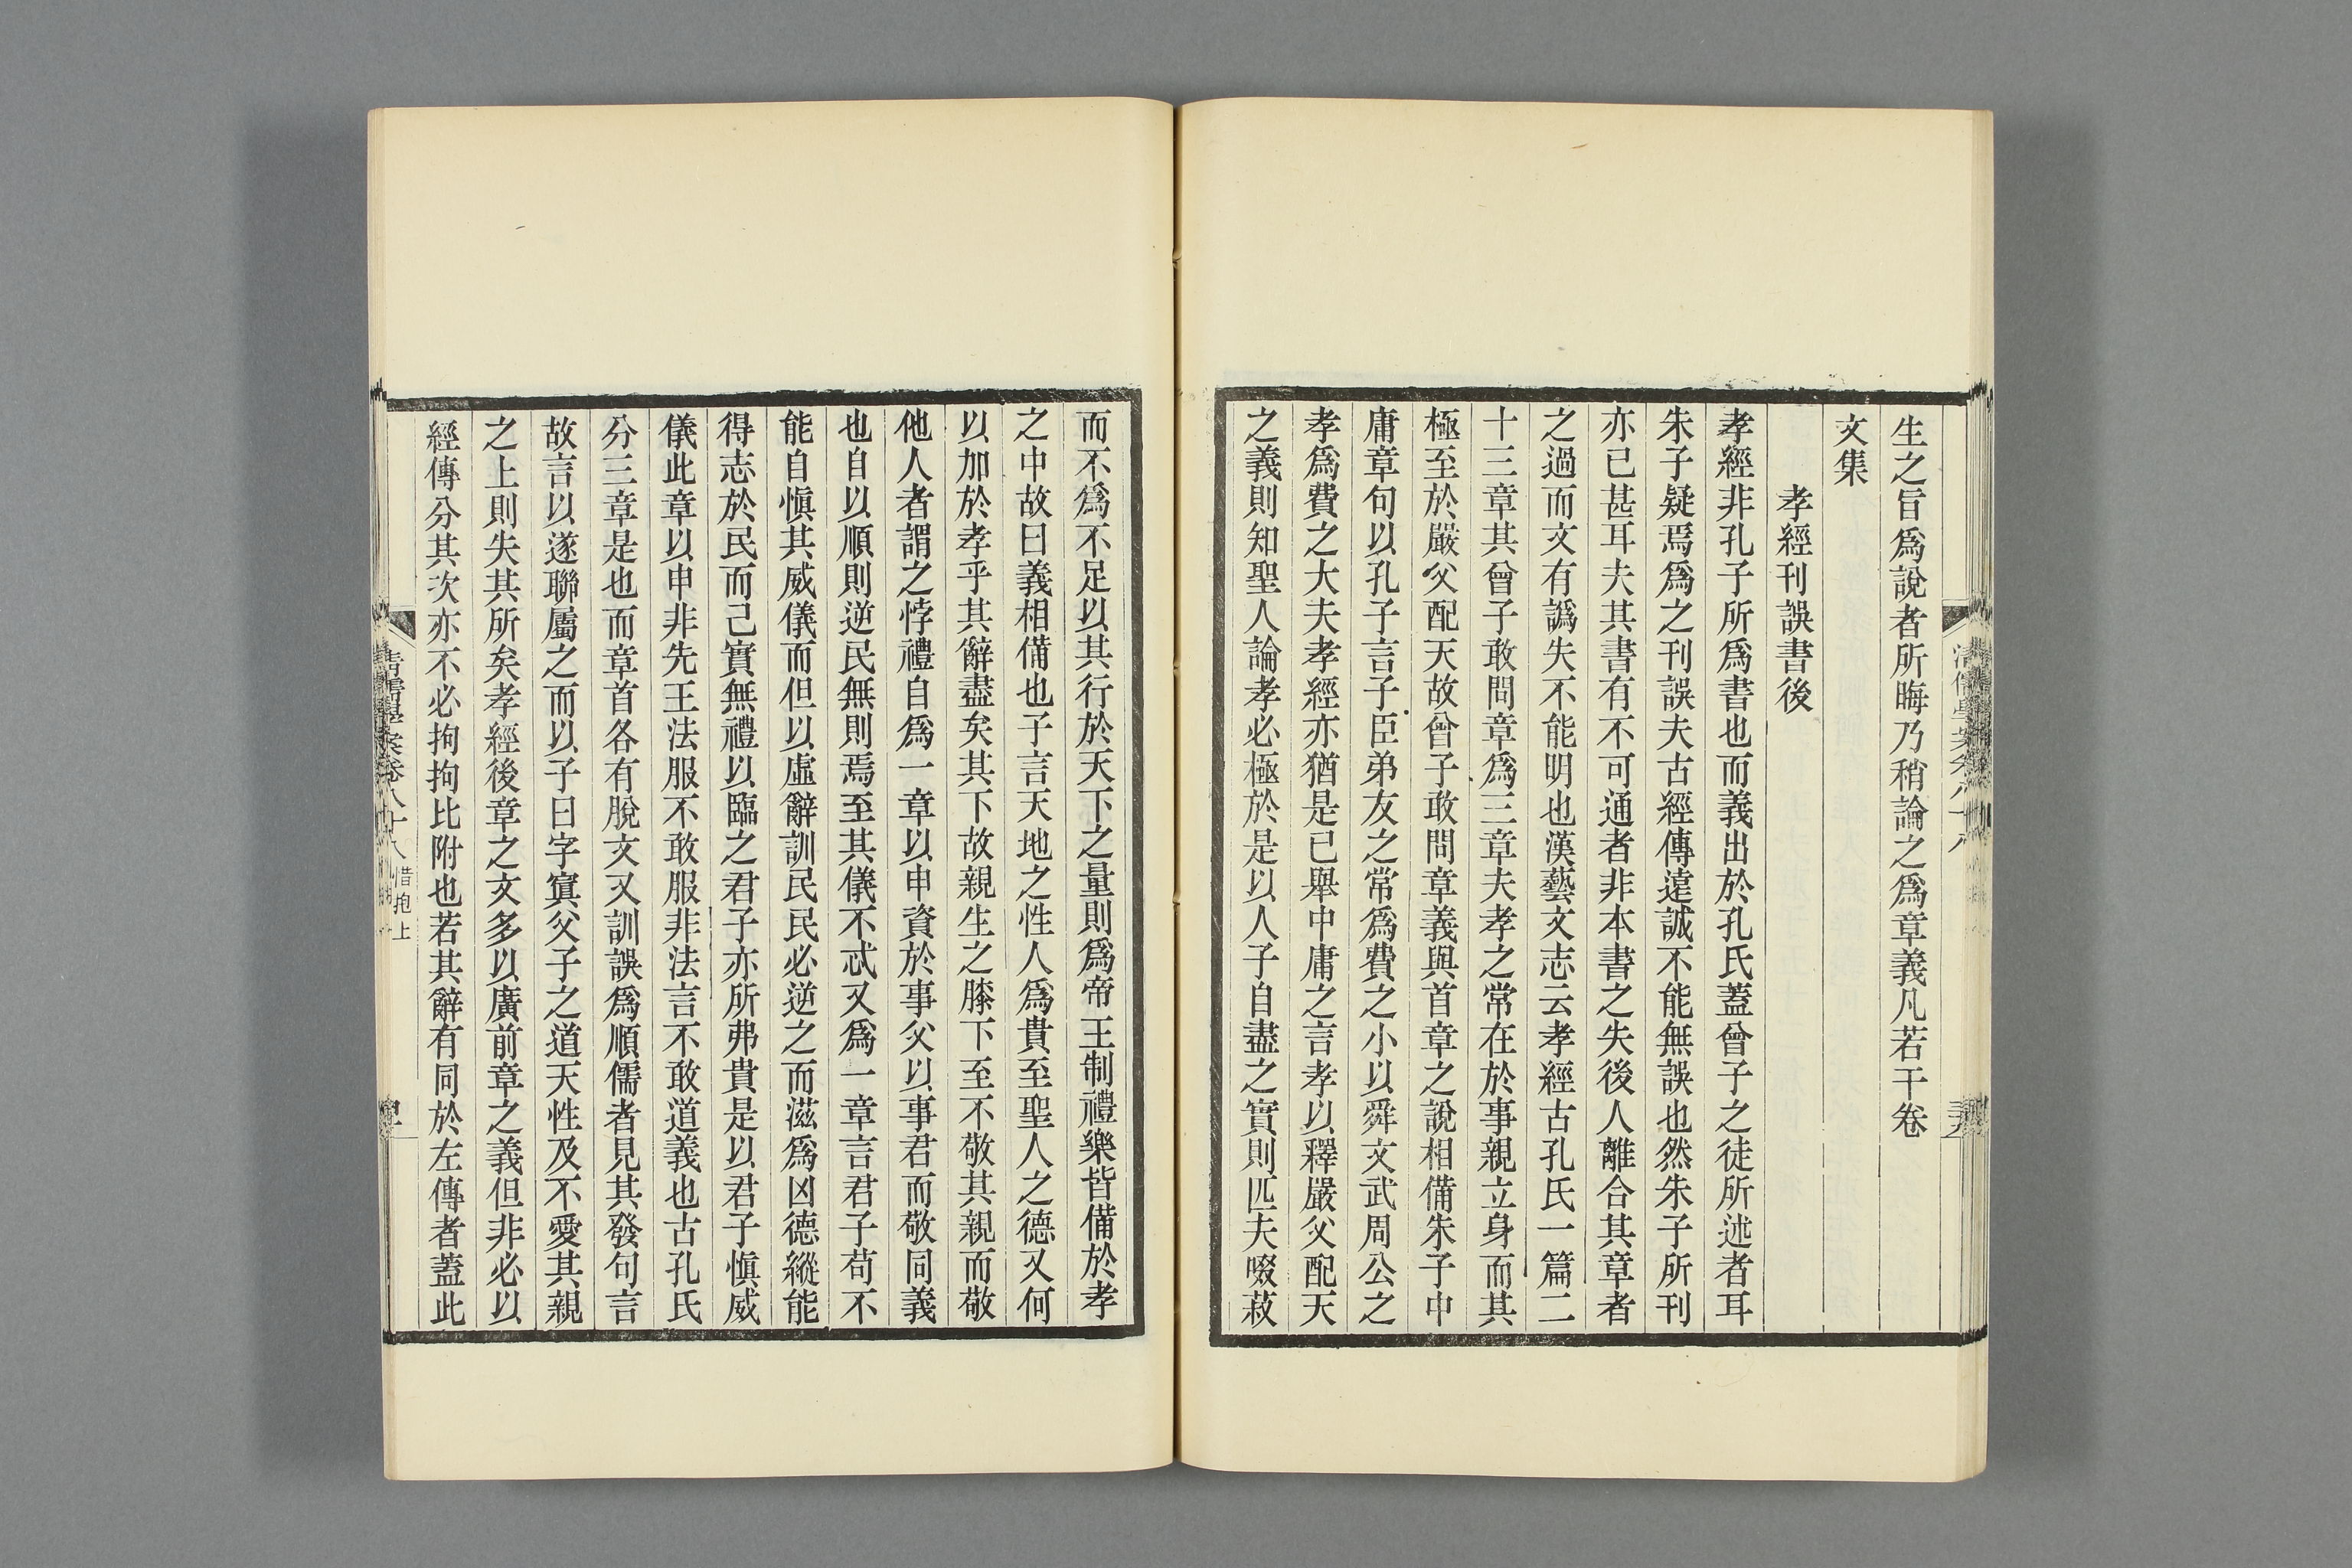 生之旨爲說者所晦乃稍論之爲章義凡若干卷
文集
孝經刊誤書後
孝經非孔子所爲書也而義出於孔氏蓋曾子之徒所述者耳
朱子疑焉爲之刊誤夫古經傳遠誠不能無誤也然朱子所刊
亦已甚耳夫其書有不可通者非本書之失後人離合其章者
之過而文有譌失不能明也漢藝文志云孝經古孔氏一篇二
十三章其曾子敢問章爲三章夫孝之常在於事親立身而其
極至於嚴父配天故曾子敢問章義與首章之說相備朱子中
庸章句以孔子言子臣弟友之常爲費之小以舜文武周公之
孝爲費之大夫孝經亦猶是已舉中庸之言孝以釋嚴父配天
之義則知聖人論孝必極於是以人子自盡之實則匹夫啜菽
而不爲不足以其行於天下之量則爲帝王制禮樂皆備於孝
之中故曰義相備也子言天地之性人爲貴至聖人之德又何
以加於孝乎其辭盡矣其下故親生之膝下至不敬其親而敬
他人者謂之悖禮自爲一章以申資於事父以事君而敬同義
也自以順則逆民無則焉至其儀不忒又爲一章言君子苟不
能自愼其威儀而但以虛辭訓民民必逆之而滋爲凶德縱能
得志於民而己實無禮以臨之君子亦所弗貴是以君子愼威
儀此章以申非先王法服不敢服非法言不敢道義也古孔氏
分三章是也而章首各有脫文又訓誤爲順儒者見其發句言
故言以遂聯屬之而以子曰字寘父子之道天性及不愛其親
之上則失其所矣孝經後章之文多以廣前章之義但非必以
經傳分其次亦不必拘拘比附也若其辭有同於左傳者蓋此
清儒學案卷八十八
惜抱上